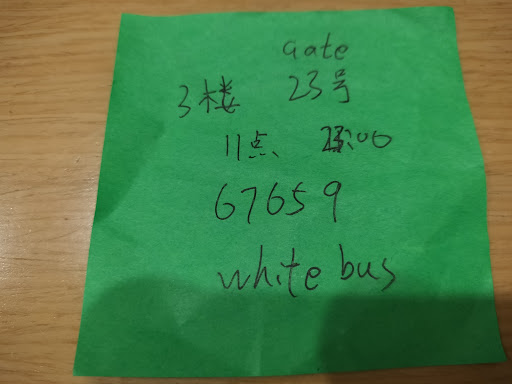 Gate
3楼 23号
11点 23:00
67659
white bus